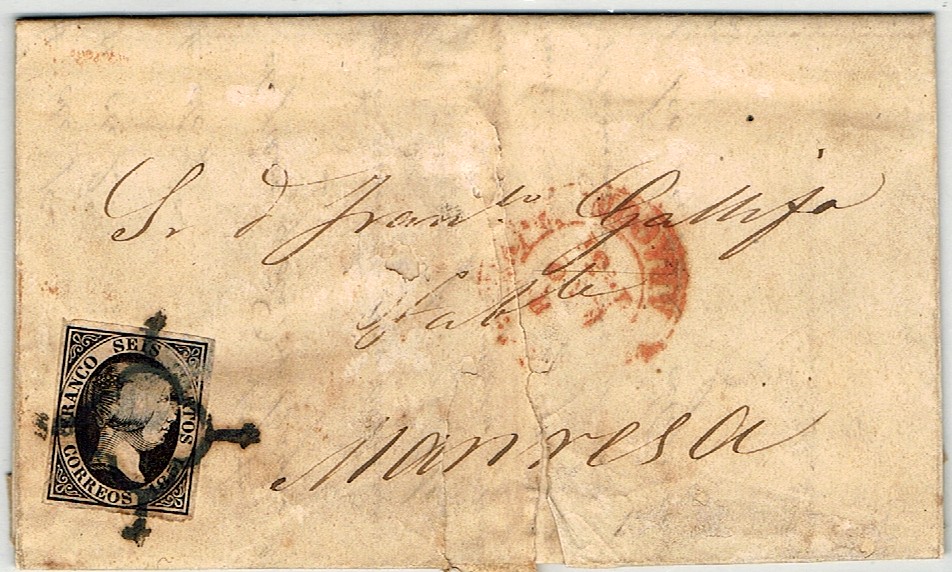 Sr d Fran.co Gallifa
Fab.te
Manresa
FRANCO SEIS CTOS
CORREOS 1851